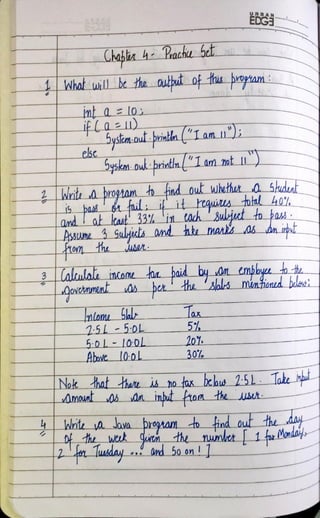 URBAN
EDGE
Chapter 4 - Practice Set
1 What will be the output of this program:
int a = 10;
if (a = 11)
System.out.println ("I am 11");
else
System.out.println ("I am not 11")
2 Write a program to find out whether a student
is pass or fail; if it requires total 40%
and at least 33% in each subject to pass.
Assume 3 subjects and take marks as an input
from the user.
3 Calculate income tax paid by an employee to the
government as per the slabs mentioned below:
Income Slab Tax
2.5L - 5.0L 5%
5.0L - 10.0L 20%
Above 10.0L 30%
Note that there is no tax below 2.5L. Take input
amount as an input from the user.
4 Write a Java program to find out the day
of the week given the number [1 for Monday,
2 for Tuesday ... and so on!]